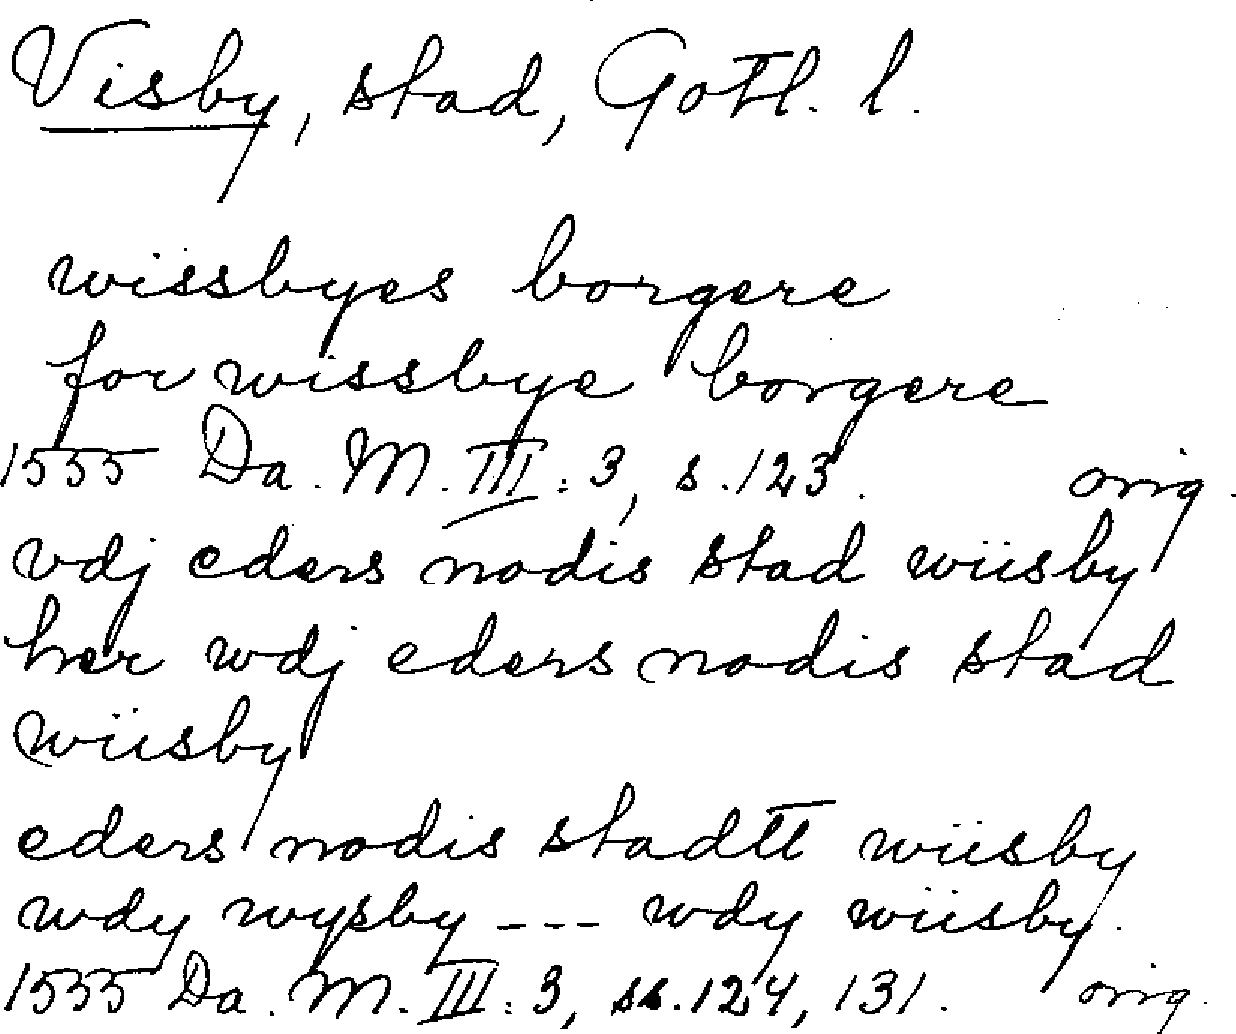 Visby, stad, Gotl. l.
wissbyes borgere
for wissbye borgere
1535 Da. M. III: 3, s. 123. orig.
vdj eders nodis stad wiisby
her wdj eders nodis stad
wiisby
eders nodis stadtt wiisby
wdy wysby --- wdy wiisby.
1535 Da. M. III: 3, ss. 124, 131. orig.